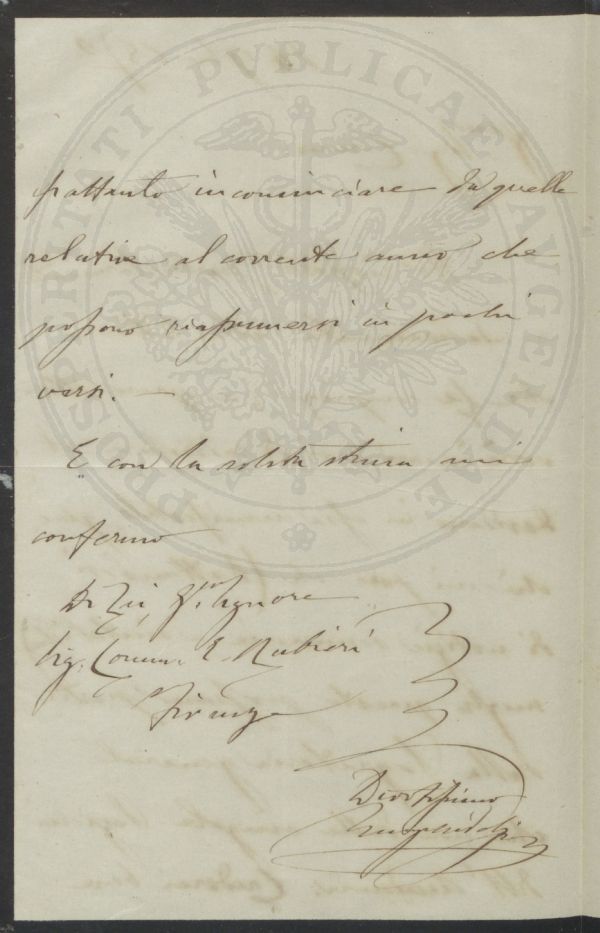 PROSPERITATI PVBLICAE AVGENDAE
pattanto incominciare da quelle
relative al corrente anno, che
possono riassumersi in pochi
versi. —
E con la solita stima mi
confermo
Di Lei, Ill. Signore
Sig. Comm. E. Rubieri
Firenze
Devotissimo